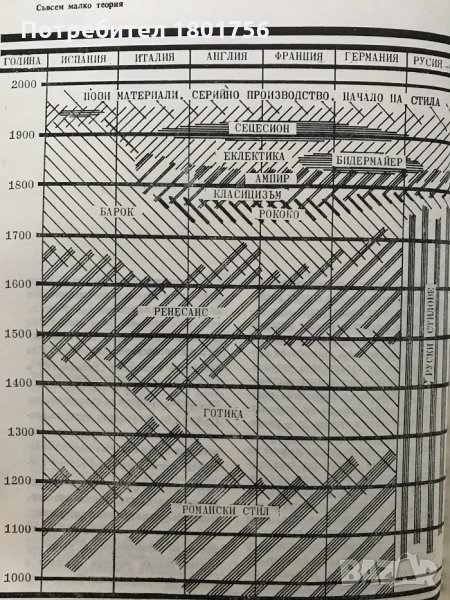 Съвсем малко теория
Потребител 1801756
ГОДИНА ИСПАНИЯ ИТАЛИЯ АНГЛИЯ ФРАНЦИЯ ГЕРМАНИЯ РУСИЯ
2000
НОВИ МАТЕРИАЛИ, СЕРИЙНО ПРОИЗВОДСТВО, НАЧАЛО НА СТИЛА
СЕЦЕСИОН
1900
ЕКЛЕКТИКА БИДЕРМАЙЕР
АМПИР
1800
КЛАСИЦИЗЪМ
БАРОК РОКОКО
1700
1600
РЕНЕСАНС
РУСКИ СТИЛОВЕ
1500
1400
ГОТИКА
1300
1200
РОМАНСКИ СТИЛ
1100
1000
BAZAR